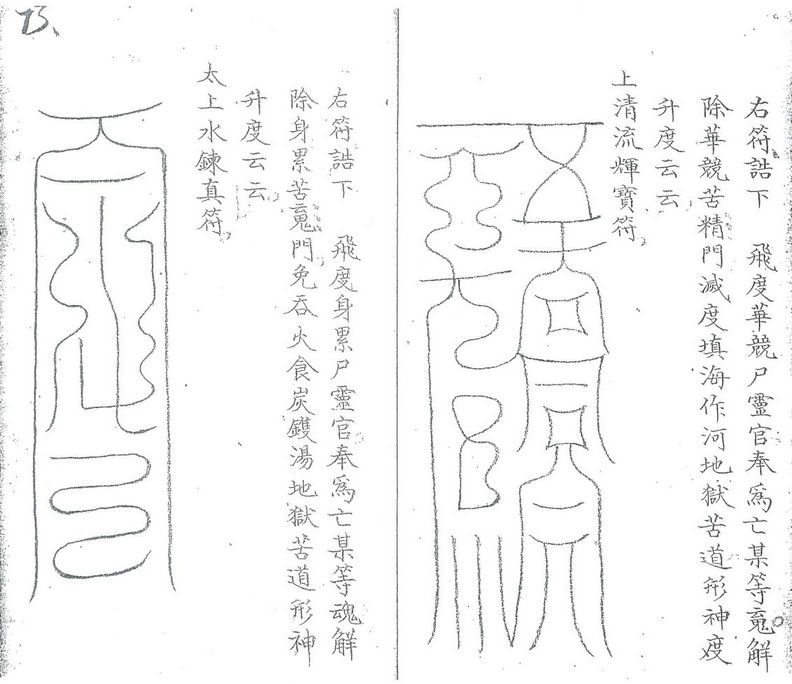 右符誥下　飛度華競尸靈官奉為亡某等䰟觧
除華競苦精門滅度填海作河地獄苦道形神度
升度云云
上清流輝寶符
右符誥下　飛度身累尸靈官奉為亡某等魂觧
除身累苦䰟門免吞火食炭鑊湯地獄苦道形神
升度云云
太上水鍊真符